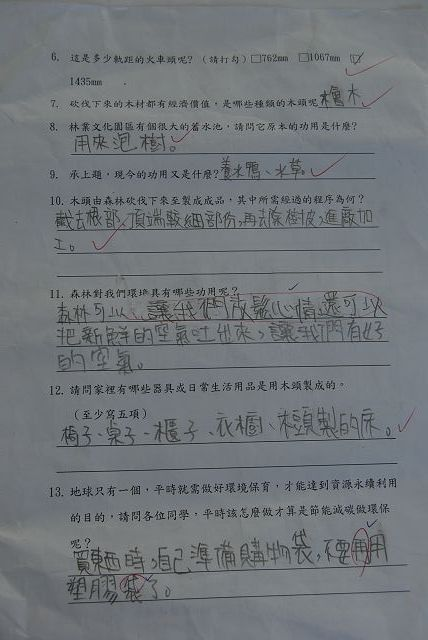 6. 這是多少軌距的火車頭呢?(請打勾)□762mm □1067mm ☑
1435mm
7. 砍伐下來的木材都有經濟價值,是哪些種類的木頭呢 檜木
8. 林業文化園區有個很大的蓄水池,請問它原本的功用是什麼?
用來泡樹。
9. 承上題,現今的功用又是什麼? 養水鴨、水草。
10. 木頭由森林砍伐下來至製成成品,其中所需經過的程序為何?
截去根部,頂端較細部份,再去除樹皮,進廠加
工。
11. 森林對我們環境具有哪些功用呢?
森林可以讓我們放鬆心情,還可以
把新鮮的空氣吐出來,讓我們有好
的空氣。
12. 請問家裡有哪些器具或日常生活用品是用木頭製成的。
(至少寫五項)
椅子、桌子、櫃子、衣櫥、木頭製的床。
13. 地球只有一個,平時就需做好環境保育,才能達到資源永續利用
的目的,請問各位同學,平時該怎麼做才算是節能減碳做環保
呢?
買東西時,自己準備購物袋,不要再用
塑膠袋了。